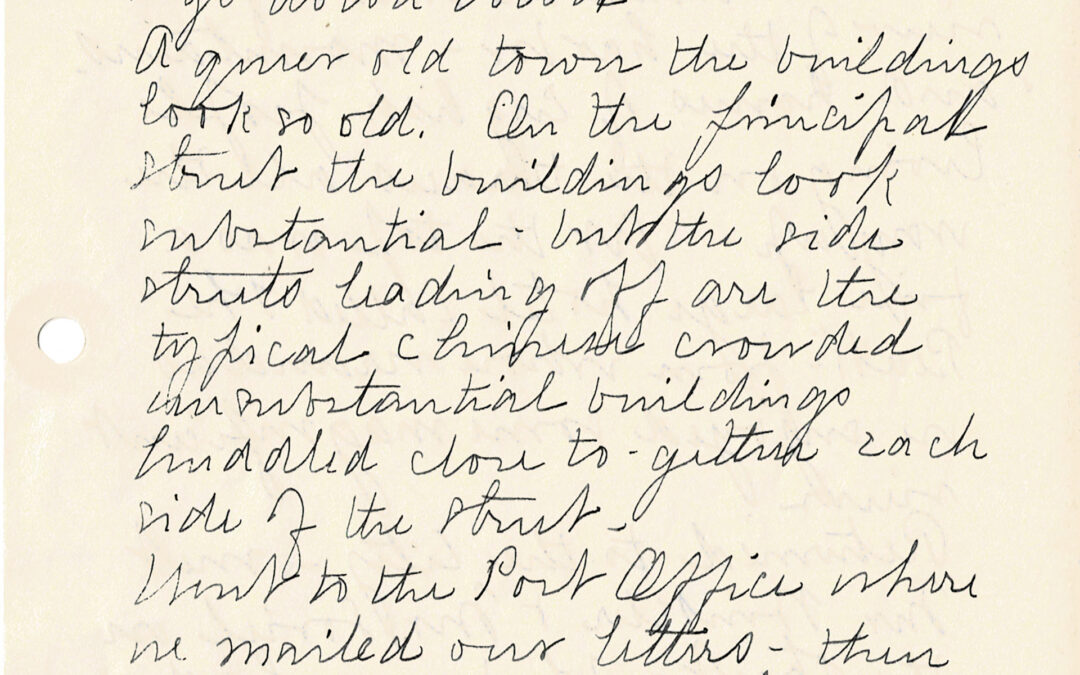 A queer old town the buildings
look so old. On the principal
street the buildings look
substantial - but the side
streets leading off are the
typical Chinese crowded
unsubstantial buildings
huddled close to-gether each
side of the street -
Went to the Post Office where
we mailed our letters - then